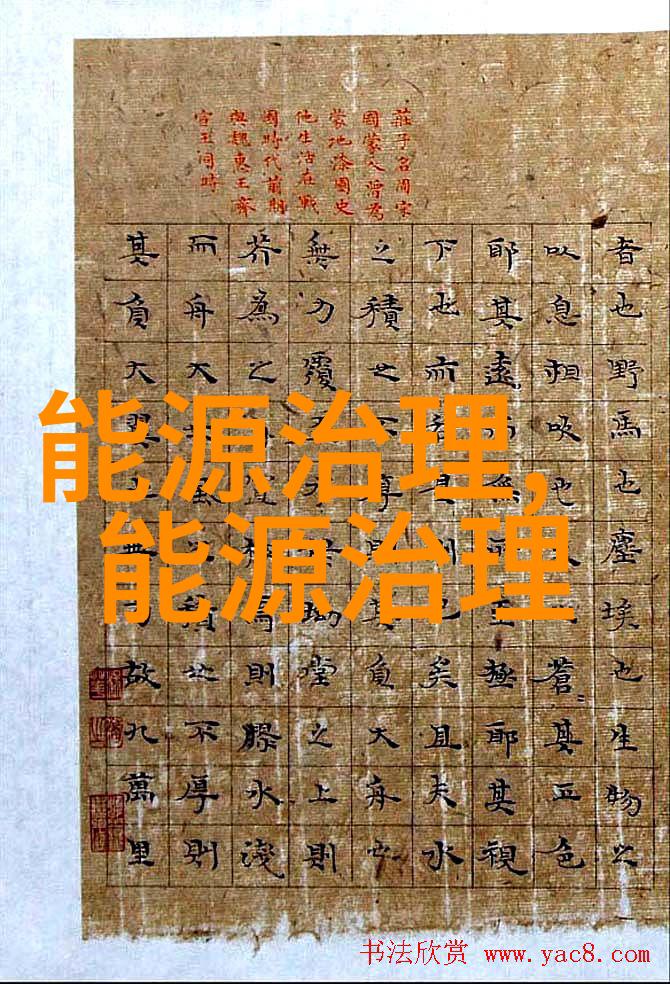 莊子名周宋
國蒙人曾為
蒙地漆園史
他生活在戰
國時代前期
與魏惠王齊
宣王同時
者也野馬也塵埃也生物之
以息相吹也蒼〻其正色
耶其遠而無所至極耶其視
下也而若是則已矣且夫水
之積也不厚則其負大舟也
無力覆坳堂之上則
芥為之舟置杯焉則膠水淺
而舟大也風之積也不厚則
其負大翼也無力故九萬里
能源治理,
能源治理
书法欣赏 www.yac8.com